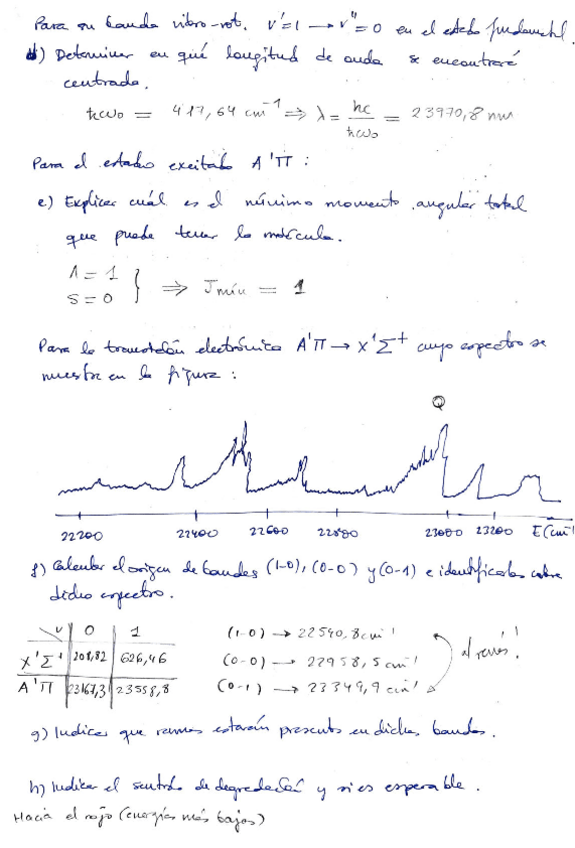 Para su banda vibro-rot. v'=1 → v''=0 en el estado fundamental.
d) Determinar en qué longitud de onda se encontrará
centrada.
ħω₀ = 417,64 cm⁻¹ ⇒ λ = hc/ħω₀ = 23970,8 nm
Para el estado excitado A'Π :
e) Explicar cuál es el mínimo momento angular total
que puede tener la molécula.
Λ = 1
S = 0 } ⇒ Jmín = 1
Para la transición electrónica A'Π → X'Σ⁺ cuyo espectro se
muestra en la figura :
Q
22200 22400 22600 22800 23000 23200 E(cm⁻¹
f) Calcular el origen de bandas (1-0), (0-0) y (0-1) e identificarlos sobre
dicho espectro.
v 0 1
X'Σ⁺ 208,82 626,46
A'Π 23167,3 23558,8
(1-0) → 22540,8 cm⁻¹
(0-0) → 22958,5 cm⁻¹
(0-1) → 23349,9 cm⁻¹
al revés!
g) Indicar que ramas estarán presentes en dichas bandas.
h) Indicar el sentido de degradación y si es esperable.
Hacia el rojo (energías más bajas)